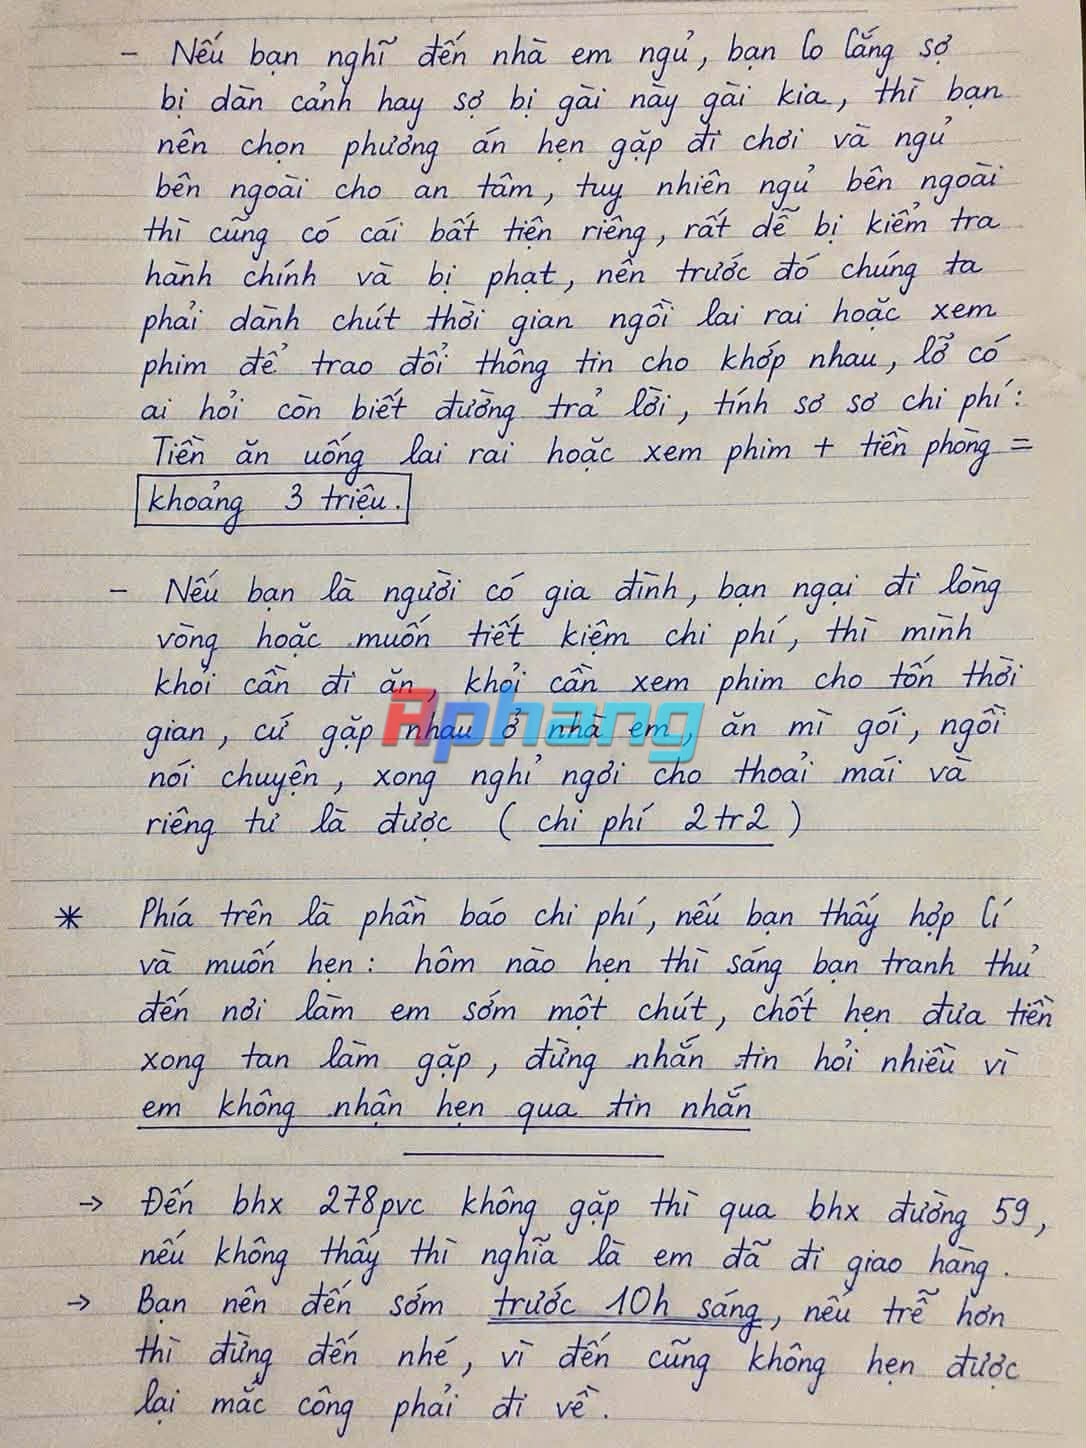 - Nếu bạn nghĩ đến nhà em ngủ, bạn lo lắng sợ
bị dàn cảnh hay sợ bị gài này gài kia, thì bạn
nên chọn phương án hẹn gặp đi chơi và ngủ
bên ngoài cho an tâm, tuy nhiên ngủ bên ngoài
thì cũng có cái bất tiện riêng, rất dễ bị kiểm tra
hành chính và bị phạt, nên trước đó chúng ta
phải dành chút thời gian ngồi lai rai hoặc xem
phim để trao đổi thông tin cho khớp nhau, lỡ có
ai hỏi còn biết đường trả lời, tính sơ sơ chi phí:
Tiền ăn uống lai rai hoặc xem phim + tiền phòng =
khoảng 3 triệu.
- Nếu bạn là người có gia đình, bạn ngại đi lòng
vòng hoặc muốn tiết kiệm chi phí, thì mình
khỏi cần đi ăn, khỏi cần xem phim cho tốn thời
gian, cứ gặp nhau ở nhà em, ăn mì gói, ngồi
nói chuyện, xong nghỉ ngơi cho thoải mái và
riêng tư là được (chi phí 2tr2)
Aphang
* Phía trên là phần báo chi phí, nếu bạn thấy hợp lí
và muốn hẹn: hôm nào hẹn thì sáng bạn tranh thủ
đến nơi làm em sớm một chút, chốt hẹn đưa tiền
xong tan làm gặp, đừng nhắn tin hỏi nhiều vì
em không nhận hẹn qua tin nhắn
→ Đến bhx 278pvc không gặp thì qua bhx đường 59,
nếu không thấy thì nghĩa là em đã đi giao hàng.
→ Bạn nên đến sớm trước 10h sáng, nếu trễ hơn
thì đừng đến nhé, vì đến cũng không hẹn được
lại mắc công phải đi về.